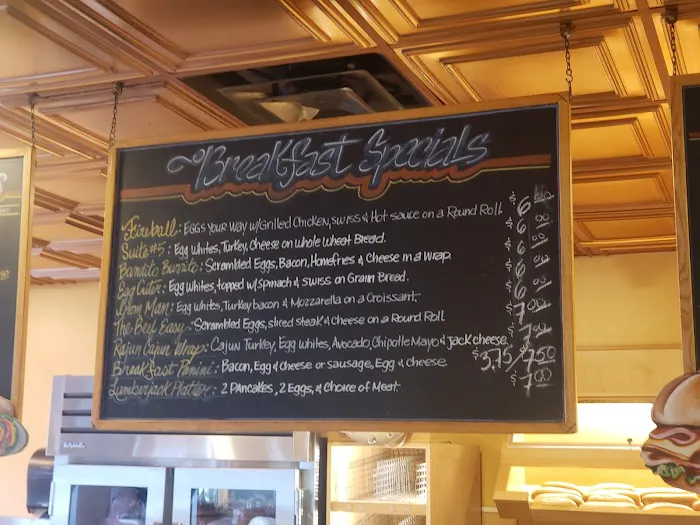 Breakfast Specials
Fireball: Eggs your way w/Grilled Chicken, swiss & Hot sauce on a Round Roll $6
Suite #5: Egg whites, Turkey, cheese on whole wheat Bread. $6
Bandito Burrito: Scrambled Eggs, Bacon, Homefries & Cheese in a wrap. $6
Egg Cetera: Egg whites, topped w/spinach & swiss on Grain Bread. $6
Mom Man: Egg whites, Turkey bacon & Mozzarella on a Croissant. $6
The Beef Easy: Scrambled Eggs, sliced steak & cheese on a Round Roll. $7
Rajun Cajun Wrap: Cajun Turkey, Egg whites, Avocado, Chipotle Mayo & Jack cheese. $7
Breakfast Panini: Bacon, Egg & cheese or sausage, Egg & cheese $3.75/7.50
Lumberjack Platter: 2 Pancakes, 2 Eggs, & Choice of Meat. $7.00